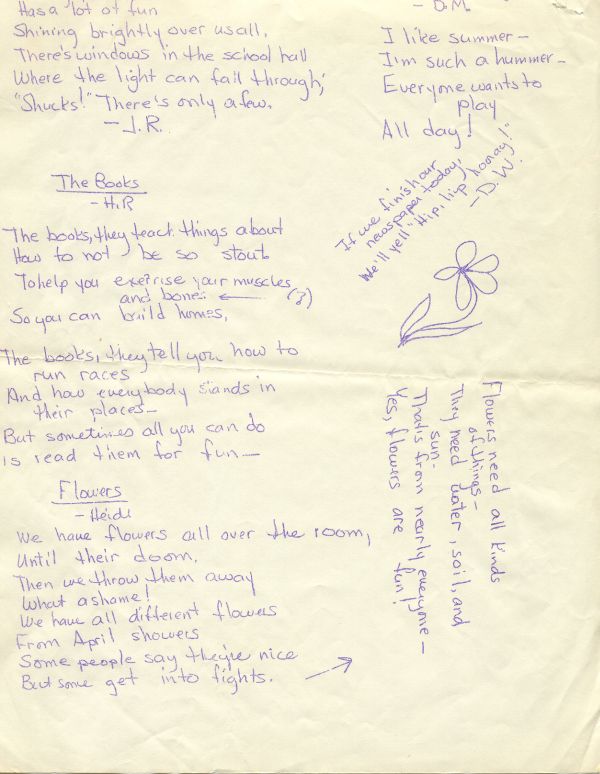 Has a lot of fun
Shining brightly over us all,
There's windows in the school hall
Where the light can fall through;
"Shucks!" There's only a few.
- J.R.
The Books
- H.R
The books, they teach things about
How to not be so stout
To help you exercise your muscles
and bones ← (3)
So you can build homes,
The books, they tell you how to
run races
And how everybody stands in
their places-
But sometimes all you can do
is read them for fun-
Flowers
- Heidi
We have flowers all over the room,
Until their doom,
Then we throw them away
What a shame!
We have all different flowers
From April showers
Some people say they're nice
But some get into fights.
- D.M.
I like summer-
I'm such a hummer-
Everyone wants to
play
All day!
If we finish our
newspaper today,
We'll yell "Hip, hip, hooray!"
- D.W.
Flowers need all kinds
of things-
They need water, soil, and
sun-
That's from nearly everyone-
Yes, flowers are fun!